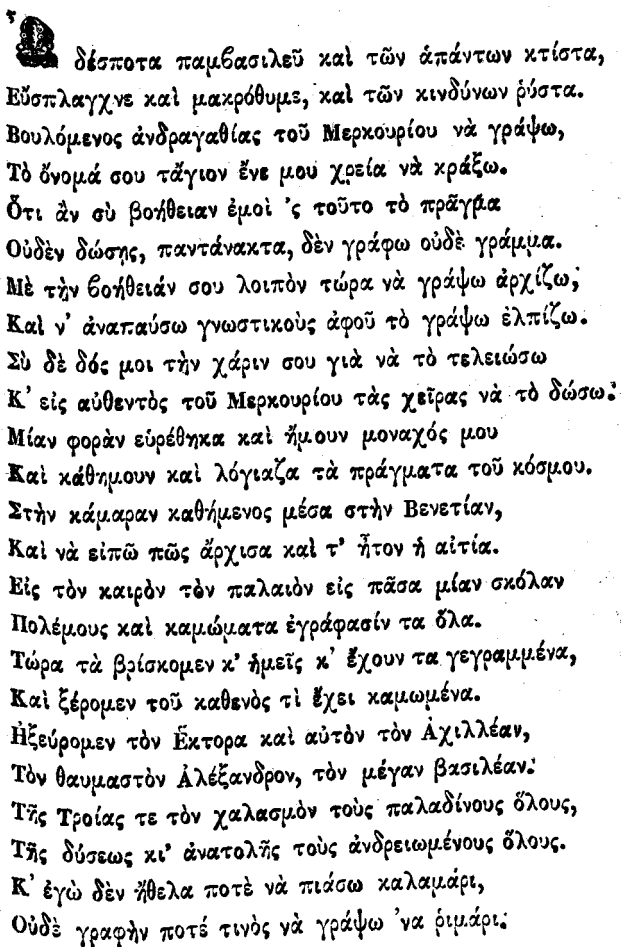 Ὦ δέσποτα παμβασιλεῦ καὶ τῶν ἁπάντων κτίστα,
Εὔσπλαγχνε καὶ μακρόθυμε, καὶ τῶν κινδύνων ῥύστα.
Βουλόμενος ἀνδραγαθίας τοῦ Μερκουρίου νὰ γράψω,
Τὸ ὄνομά σου τἄγιον ἔνε μου χρεία νὰ κράξω.
Ὅτι ἂν σὺ βοήθειαν ἐμοὶ ’ς τοῦτο τὸ πρᾶγμα
Οὐδὲν δώσῃς, παντάνακτα, δὲν γράφω οὐδὲ γράμμα.
Μὲ τὴν βοήθειάν σου λοιπὸν τώρα νὰ γράψω ἀρχίζω,
Καὶ ν’ ἀναπαύσω γνωστικοὺς ἀφοῦ τὸ γράψω ἐλπίζω.
Σὺ δὲ δός μοι τὴν χάριν σου γιὰ νὰ τὸ τελειώσω
Κ’ εἰς αὐθεντὸς τοῦ Μερκουρίου τὰς χεῖρας νὰ τὸ δώσω.
Μίαν φορὰν εὑρέθηκα καὶ ἤμουν μοναχός μου
Καὶ κάθημουν καὶ λόγιαζα τὰ πράγματα τοῦ κόσμου.
Στὴν κάμαραν καθήμενος μέσα στὴν Βενετίαν,
Καὶ νὰ εἰπῶ πῶς ἄρχισα καὶ τ’ ἦτον ἡ αἰτία.
Εἰς τὸν καιρὸν τὸν παλαιὸν εἰς πᾶσα μίαν σκόλαν
Πολέμους καὶ καμώματα ἐγράφασίν τα ὅλα.
Τώρα τὰ βρίσκομεν κ’ ἡμεῖς κ’ ἔχουν τα γεγραμμένα,
Καὶ ξέρομεν τοῦ καθενὸς τὶ ἔχει καμωμένα.
Ἠξεύρομεν τὸν Ἕκτορα καὶ αὐτὸν τὸν Ἀχιλλέαν,
Τὸν θαυμαστὸν Ἀλέξανδρον, τὸν μέγαν βασιλέαν.
Τῆς Τροίας τε τὸν χαλασμὸν τοὺς παλαδίνους ὅλους,
Τῆς δύσεως κι’ ἀνατολῆς τοὺς ἀνδρειωμένους ὅλους.
Κ’ ἐγὼ δὲν ἤθελα ποτὲ νὰ πιάσω καλαμάρι,
Οὐδὲ γραφὴν ποτέ τινὸς νὰ γράψω ’να ῥιμάρι.